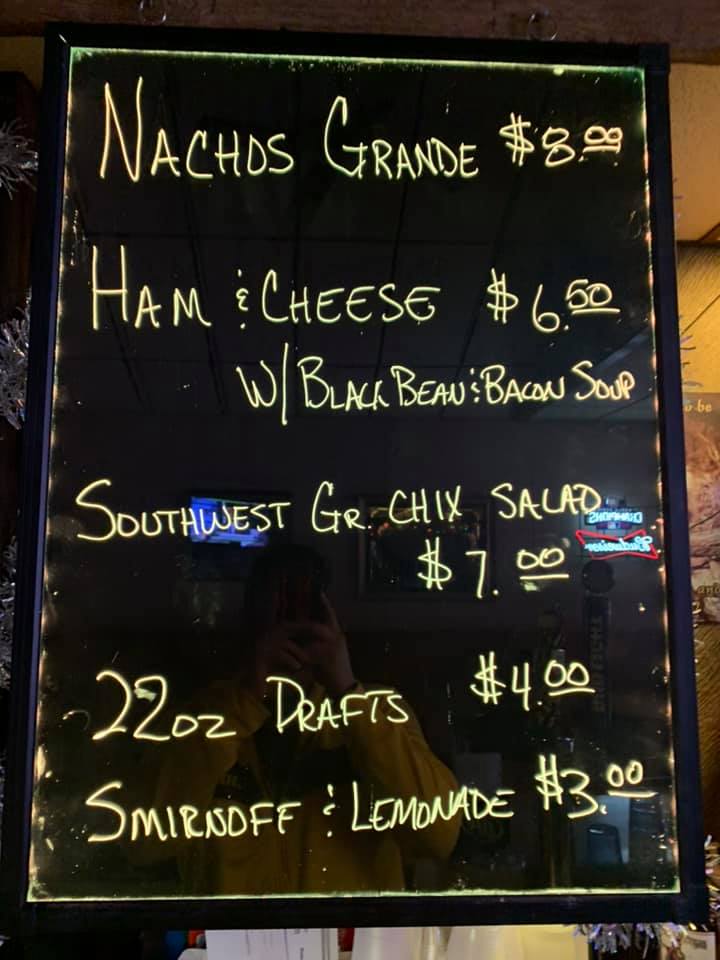 NACHOS GRANDE $8.00
HAM & CHEESE $6.50
W/ BLACK BEAN & BACON SOUP
SOUTHWEST GR. CHIX SALAD
$7.00
22OZ DRAFTS $4.00
SMIRNOFF & LEMONADE $3.00
CHAMPIONS
Budweiser